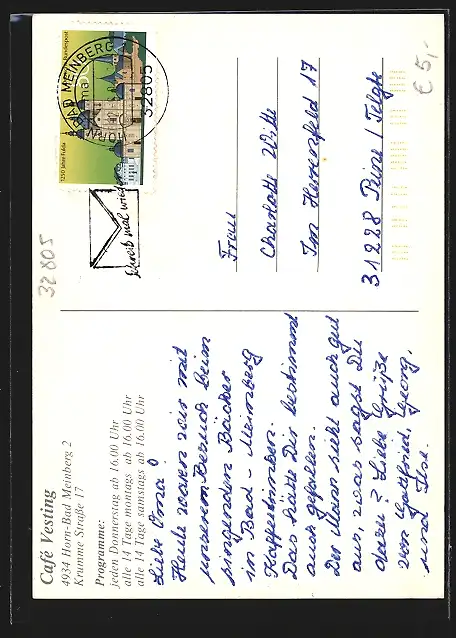 Café Vesting
4934 Horn-Bad Meinberg 2
Krumme Straße 17
Programme:
jeden Donnerstag ab 16.00 Uhr
alle 14 Tage montags ab 16.00 Uhr
alle 14 Tage samstags ab 16.00 Uhr
Liebe Oma!
Heute waren wir mit
unserem Besuch beim
singenden Bäcker
in Bad - Meinberg
Kaffeetrinken.
Das hätte Dir bestimmt
auch gefallen.
Der Mann sieht auch gut
aus, was sagst Du
dazu? Liebe Grüße
von Gottfried, Georg,
und Ilse.
32805
1250 Jahre Fulda
Bundespost
HORN-BAD MEINBERG
32805
Schreib mal wieder
Frau
Charlotte Witte
Im Herrenfeld 17
31228 Peine / Telgte
€ 5,-